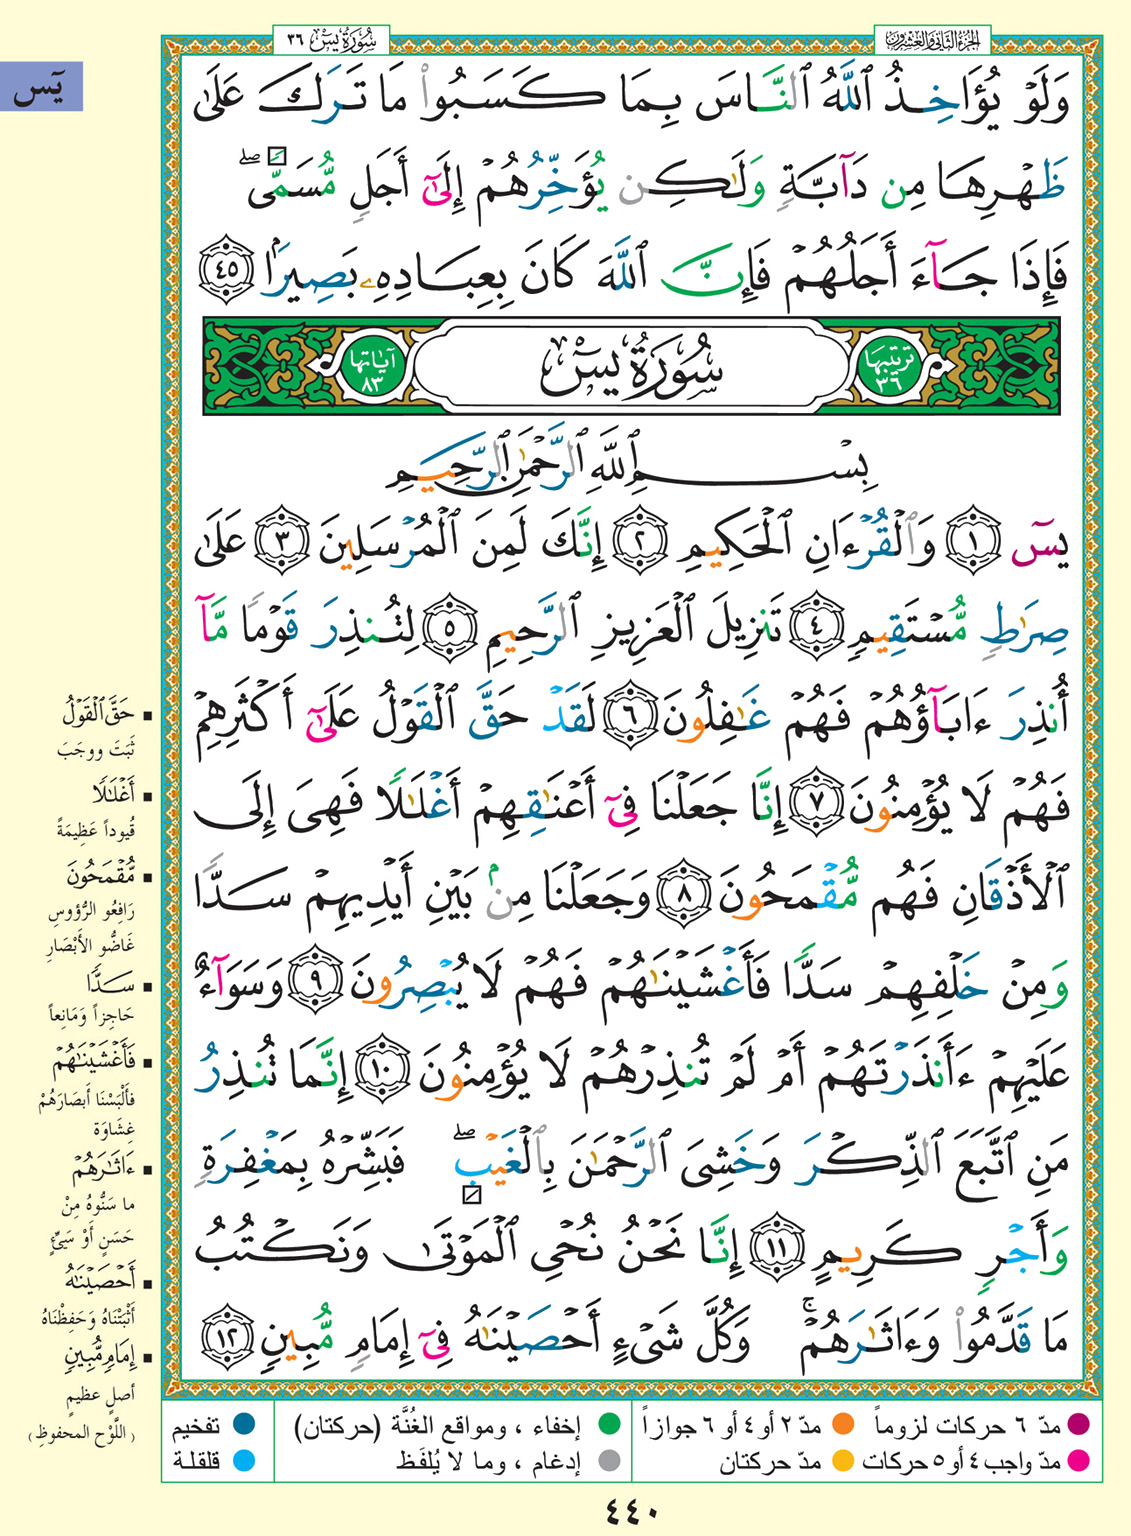 الجزء الثاني والعشرون
سُورَةُ يسٓ ٣٦
يٓس
وَلَوْ يُؤَاخِذُ ٱللَّهُ ٱلنَّاسَ بِمَا كَسَبُوا۟ مَا تَرَكَ عَلَىٰ
ظَهْرِهَا مِن دَآبَّةٍ وَلَـٰكِن يُؤَخِّرُهُمْ إِلَىٰٓ أَجَلٍ مُّسَمًّى ۖ
فَإِذَا جَآءَ أَجَلُهُمْ فَإِنَّ ٱللَّهَ كَانَ بِعِبَادِهِۦ بَصِيرًۢا ٤٥
ترتيبها ٣٦ سُورَةُ يسٓ آياتها ٨٣
بِسْمِ ٱللَّهِ ٱلرَّحْمَـٰنِ ٱلرَّحِيمِ
يسٓ ١ وَٱلْقُرْءَانِ ٱلْحَكِيمِ ٢ إِنَّكَ لَمِنَ ٱلْمُرْسَلِينَ ٣ عَلَىٰ
صِرَٰطٍ مُّسْتَقِيمٍ ٤ تَنزِيلَ ٱلْعَزِيزِ ٱلرَّحِيمِ ٥ لِتُنذِرَ قَوْمًا مَّآ
أُنذِرَ ءَابَآؤُهُمْ فَهُمْ غَـٰفِلُونَ ٦ لَقَدْ حَقَّ ٱلْقَوْلُ عَلَىٰٓ أَكْثَرِهِمْ
فَهُمْ لَا يُؤْمِنُونَ ٧ إِنَّا جَعَلْنَا فِىٓ أَعْنَـٰقِهِمْ أَغْلَـٰلًا فَهِىَ إِلَى
ٱلْأَذْقَانِ فَهُم مُّقْمَحُونَ ٨ وَجَعَلْنَا مِنۢ بَيْنِ أَيْدِيهِمْ سَدًّا
وَمِنْ خَلْفِهِمْ سَدًّا فَأَغْشَيْنَـٰهُمْ فَهُمْ لَا يُبْصِرُونَ ٩ وَسَوَآءٌ
عَلَيْهِمْ ءَأَنذَرْتَهُمْ أَمْ لَمْ تُنذِرْهُمْ لَا يُؤْمِنُونَ ١٠ إِنَّمَا تُنذِرُ
مَنِ ٱتَّبَعَ ٱلذِّكْرَ وَخَشِىَ ٱلرَّحْمَـٰنَ بِٱلْغَيْبِ ۖ فَبَشِّرْهُ بِمَغْفِرَةٍ
وَأَجْرٍ كَرِيمٍ ١١ إِنَّا نَحْنُ نُحْىِ ٱلْمَوْتَىٰ وَنَكْتُبُ
مَا قَدَّمُوا۟ وَءَاثَـٰرَهُمْ ۚ وَكُلَّ شَىْءٍ أَحْصَيْنَـٰهُ فِىٓ إِمَامٍ مُّبِينٍ ١٢
حَقَّ ٱلْقَوْلُ
ثَبَتَ ووجَبَ
أَغْلَـٰلًا
قُيوداً عَظِيمَةً
مُّقْمَحُونَ
رَافِعُو الرُّؤوسِ
غَاضُّو الأَبْصَارِ
سَدًّا
حَاجِزاً وَمَانِعاً
فَأَغْشَيْنَـٰهُمْ
فألْبَسْنَا أَبصَارَهُمْ
غِشَاوَة
ءَاثَـٰرَهُمْ
ما سَنُّوهُ مِنْ
حَسَنٍ أَوْ سَيِّئٍ
أَحْصَيْنَـٰهُ
أَثْبَتْنَاهُ وَحَفِظْنَاهُ
إِمَامٍ مُّبِينٍ
أصلٍ عظيمٍ
(اللَّوْح المحفوظِ)
مدّ ٦ حركات لزوماً مدّ ٢ أو ٤ أو ٦ جوازاً إخفاء ، ومواقع الغُنَّة (حركتان) تفخيم
مدّ واجب ٤ أو ٥ حركات مدّ حركتان إدغام ، وما لا يُلفَظ قلقلة
٤٤٠